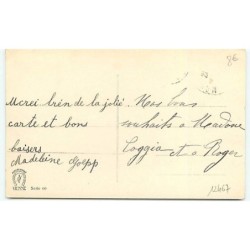 86
Merci bien de la jolie
carte et bons
baisers
Madeleine Golpp
Nos bons
souhaits à Madame
Loggia et a Roger
12667